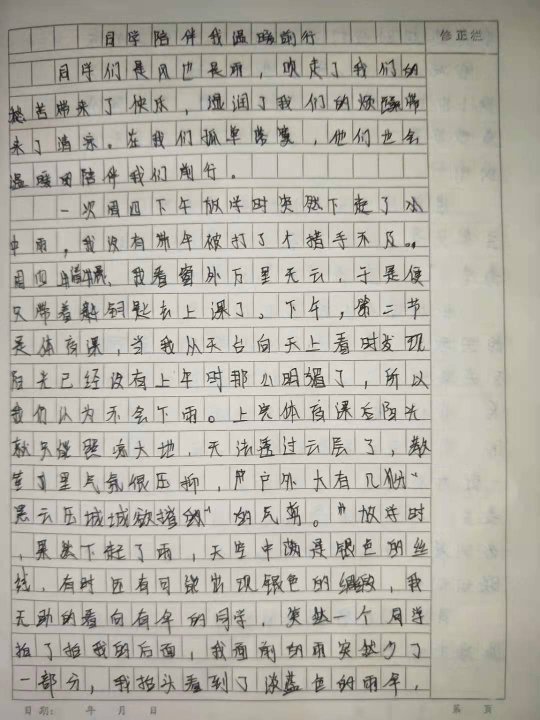 同学陪伴我温暖前行
修正栏
同学们是风也是雨，吹走了我们的
愁苦带来了快乐，湿润了我们的烦躁带
来了清凉。在我们孤单落寞，他们也会
温暖的陪伴我们前行。
一次周四下午放学时突然下起了小
中雨，我没有带伞被打了个措手不及。
周四清晨，我看窗外万里无云，于是便
只带着钥匙去上课了。下午，第二节
是体育课，当我从天台向天上看时发现
阳光已经没有上午时那么明媚了，所以
我们认为不会下雨。上完体育课后阳光
就只能照亮大地，无法透过云层了，教
室里气氛很压抑，户外大有几份“
黑云压城城欲摧的“的气势。”放学时
，果然下起了雨，天空中满是银色的丝
线，有时还有可能出现银色的绸缎，我
无助的看向有伞的同学，突然一个同学
拍了拍我的后面，我面前的雨突然少了
一部分，我抬头看到了淡蓝色的雨伞，
日期： 年 月 日
第 页